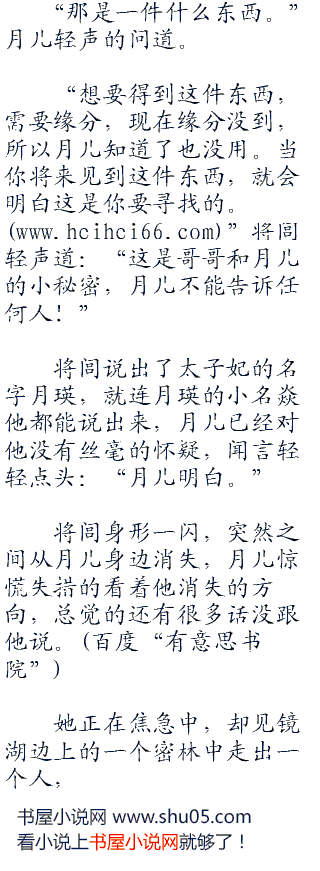 “那是一件什么东西。”
月儿轻声的问道。
“想要得到这件东西，
需要缘分，现在缘分没到，
所以月儿知道了也没用。当
你将来见到这件东西，就会
明白这是你要寻找的。
(www.hcihci66.com)”将闾
轻声道：“这是哥哥和月儿
的小秘密，月儿不能告诉任
何人！”
将闾说出了太子妃的名
字月瑛，就连月瑛的小名焱
他都能说出来，月儿已经对
他没有丝毫的怀疑，闻言轻
轻点头：“月儿明白。”
将闾身形一闪，突然之
间从月儿身边消失，月儿惊
慌失措的看着他消失的方
向，总觉的还有很多话没跟
他说。(百度“有意思书
院”)
她正在焦急中，却见镜
湖边上的一个密林中走出一
个人，
书屋小说网 www.shu05.com
看小说上书屋小说网就够了！